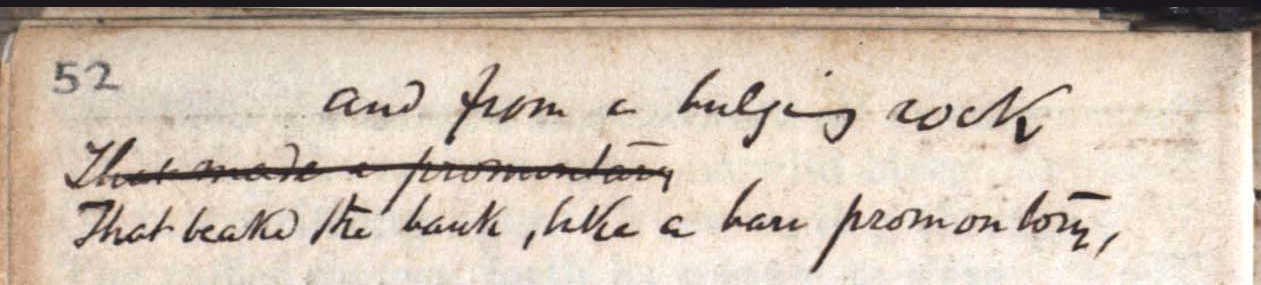 52
and from a bulging rock
That made a promontory
That beaked the bank, like a bare promontory,